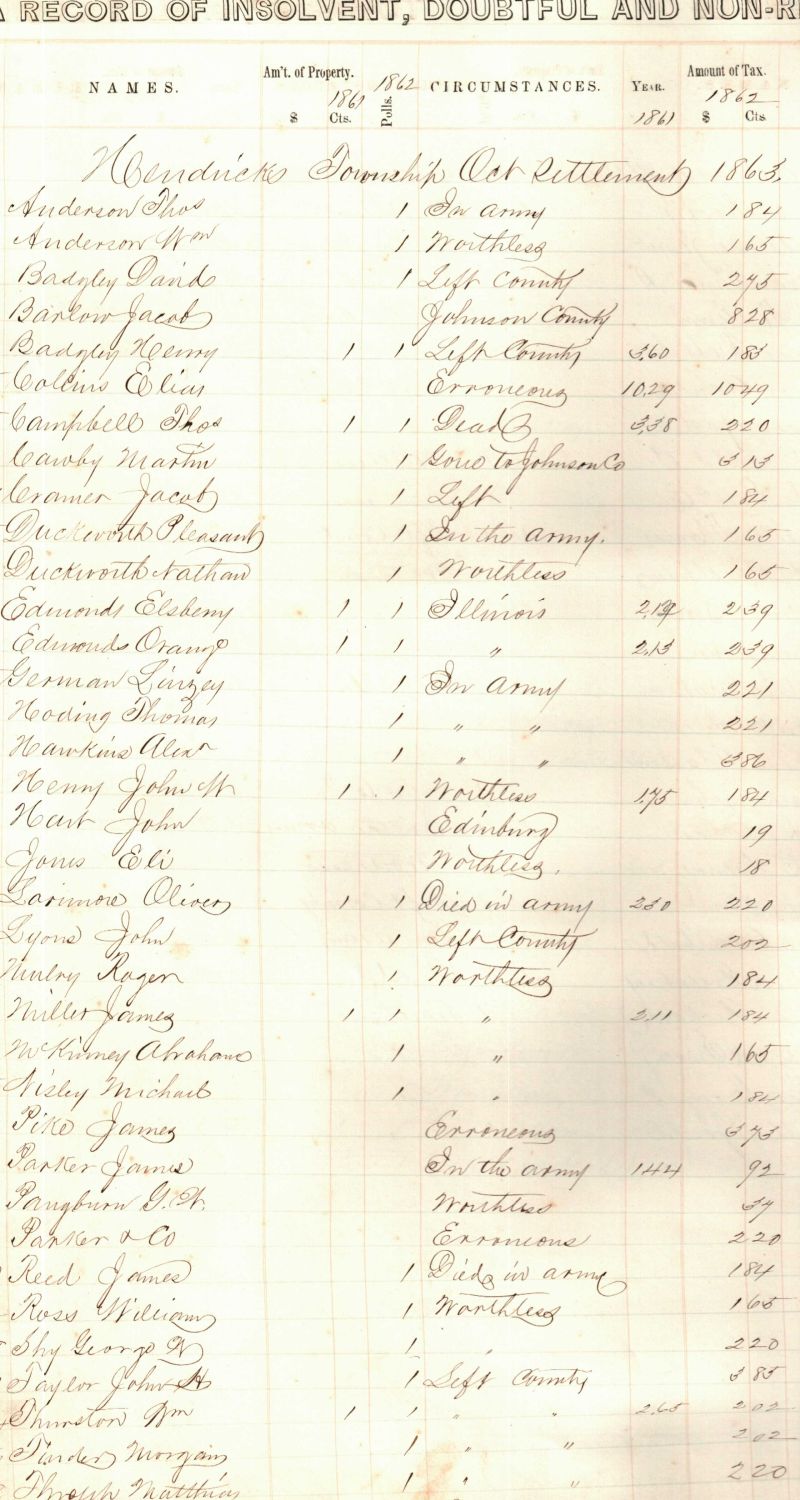 A RECORD OF INSOLVENT, DOUBTFUL AND NON-R
NAMES. Am't. of Property. 1861 $ Cts. 1862 Polls. CIRCUMSTANCES. YEAR. 1861 Amount of Tax. 1862 $ Cts.
Hendricks Township Oct Settlement 1863.
Anderson Thos 1 In army 184
Anderson Wm 1 Worthless 165
Badgley David 1 Left County 275
Barlow Jacob Johnson County 828
Badgley Henry 1 1 Left County 3.60 183
Collins Elias Erroneous 10.29 1049
Campbell Thos 1 1 Dead 3.38 220
Cawby Martin 1 Gone to Johnson Co 313
Cramer Jacob 1 Left 184
Duckworth Pleasant 1 In the army. 165
Duckworth Nathan 1 Worthless 165
Edmonds Elsberry 1 1 Illinois 239
Edmonds Orange 1 1 " 2.13 239
German Linzey 1 In Army 221
Hoding Thomas 1 " " 221
Hawkins Alexr 1 " " 386
Henry John W 1 1 Worthless 1.75 184
Hart John Edinburg 19
Jones Eli Worthless. 18
Larimore Oliver 1 1 Died in army 230 220
Lyons John 1 Left County 202
Mulry Roger 1 Worthless 184
Miller James 1 1 " 2.11 184
McKinney Abraham 1 " 165
Nisley Michael 1 " 184
Pike James Erroneous 373
Parker James In the army 144 92
Pangburn G. W. Worthless 37
Parker & Co Erroneous 220
Reed James 1 Died in army 184
Ross William 1 Worthless 165
Shy George W 1 " 220
Taylor John H 1 Left County 385
Thurston Wm 1 1 " " 2.65 202
Tinder Morgan 1 " " 202
Matthias 1 " " 220